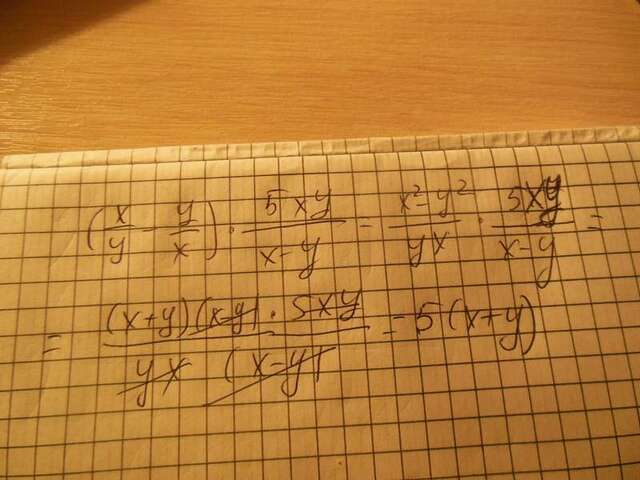 (x/y - y/x) · 5xy/(x-y) = (x²-y²)/(yx) · 5xy/(x-y) =
= ((x+y)(x-y) · 5xy)/(yx (x-y)) = 5(x+y)